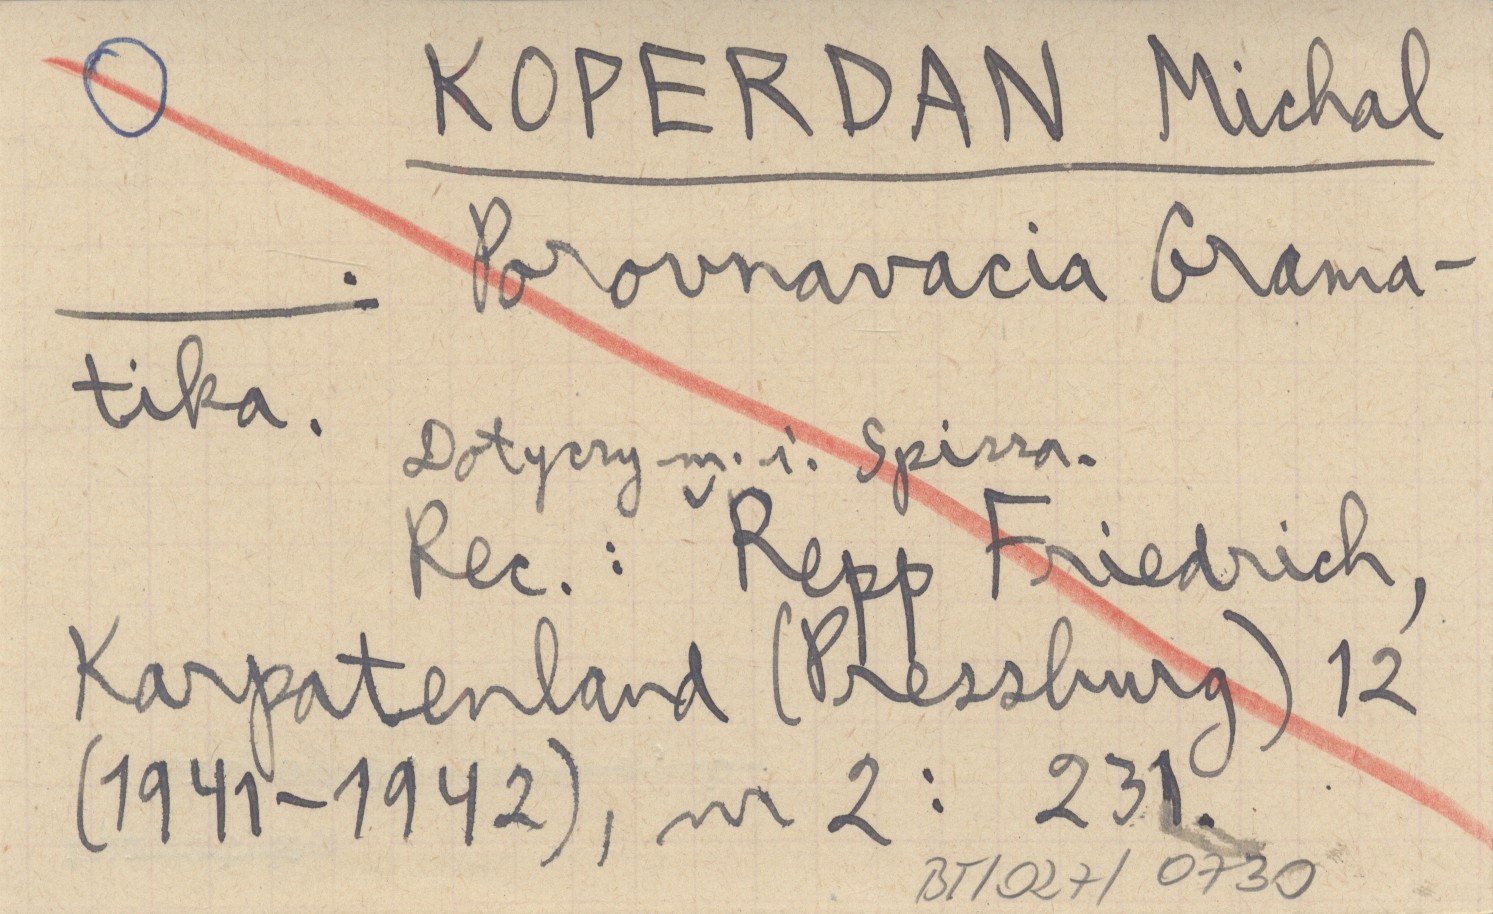 KOPERDAN Michal
______: Porovnavacia Grama-
tika.
Dotyczy m. i. Spisza.
Rec.: Repp Friedrich,
Karpatenland (Pressburg) 12
(1941-1942), nr 2: 231.
BT/027/0730